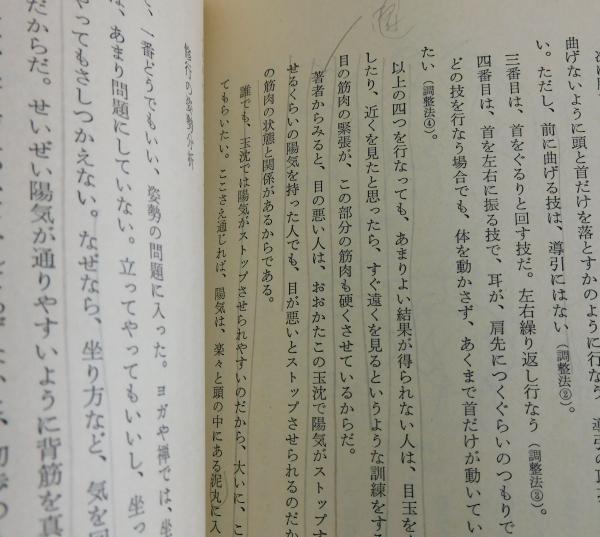 曲げないように頭と首だけを落とすかのように行なう
い。ただし、前に曲げる技は、導引にはない(調整法②)。
三番目は、首をぐるりと回す技だ。左右繰り返し行なう(調整法③)。
四番目は、首を左右に振る技で、耳が、肩先につくぐらいのつもりで
どの技を行なう場合でも、体を動かさず、あくまで首だけが動いてい
たい(調整法④)。
以上の四つを行なっても、あまりよい結果が得られない人は、目玉を
したり、近くを見たと思ったら、すぐ遠くを見るというような訓練をする
目の筋肉の緊張が、この部分の筋肉も硬くさせているからだ。
著者からみると、目の悪い人は、おおかたこの玉沈で陽気がストップす
せるくらいの陽気を持った人でも、目が悪いとストップさせられるのだか
の筋肉の状態と関係があるからである。
誰でも、玉沈では陽気がストップさせられやすいのだから、大いに、こ
てもらいたい。ここさえ通じれば、陽気は、楽々と頭の中にある泥丸に入
修行の姿勢分析
て、一番どうでもいい、姿勢の問題に入った。ヨガや禅では、坐
は、あまり問題にしていない。立ってやってもいいし、坐っ
やってもさしつかえない。なぜなら、坐り方など、気を回
だからだ。せいぜい陽気が通りやすいように背筋を真